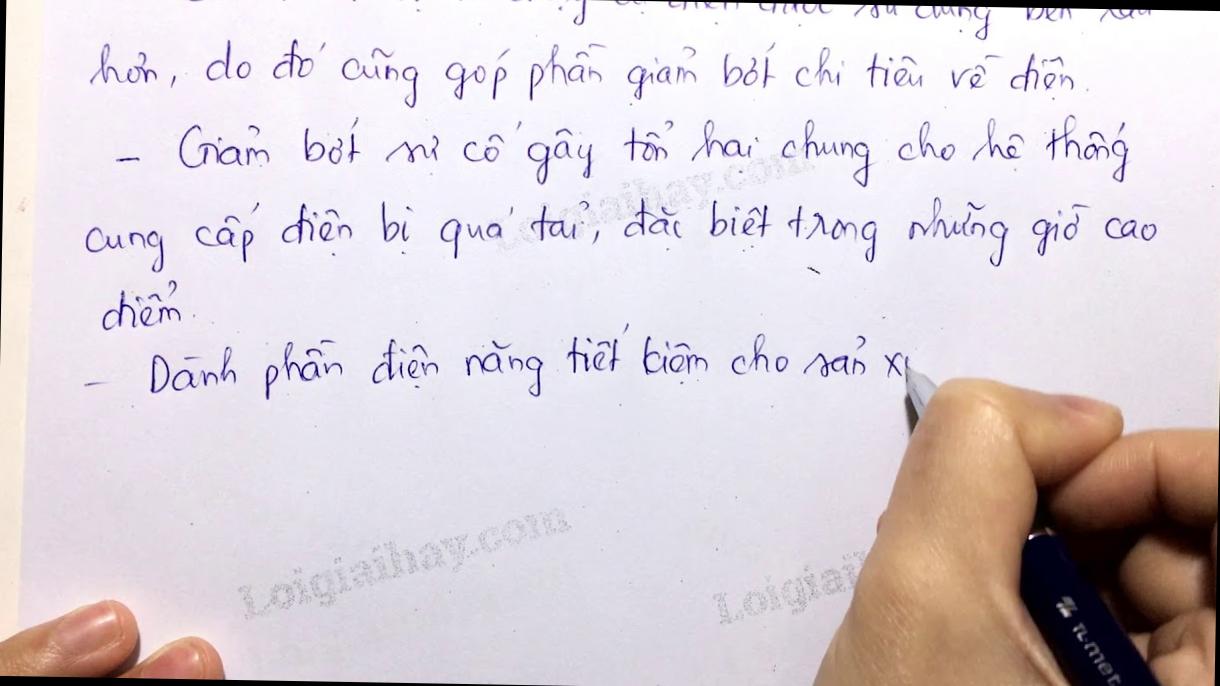 sử dụng bền lâu
hơn, do đó cũng góp phần giảm bớt chi tiêu về điện.
- Giảm bớt sự cố gây tổn hại chung cho hệ thống
cung cấp điện bị quá tải, đặc biệt trong những giờ cao
điểm.
- Dành phần điện năng tiết kiệm cho sản x
Loigiaihay.com
Loigiaihay.com
Loigiaih
TL-met